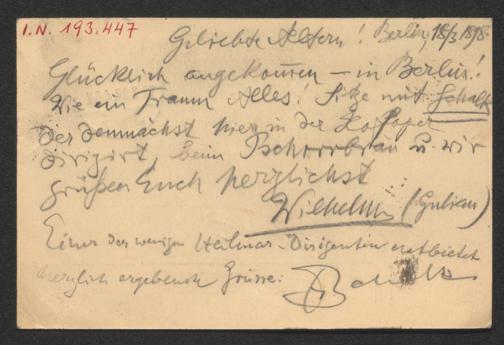 I.N. 193.447
Geliebte Aeltern! Berlin, 18/3 1898.
Glücklich angekommen – in Berlin!
Wie ein Traum Alles! Sitze mit Schalk
der demnächst hier in der Hofoper
dirigirt, beim Pschorrbräu u. wir
grüßen Euch herzlichst
Wilhelm (Gulian)
Einer der wenigen Dirigenten entbietet
herzlich ergebenste Grüsse:
Schalk